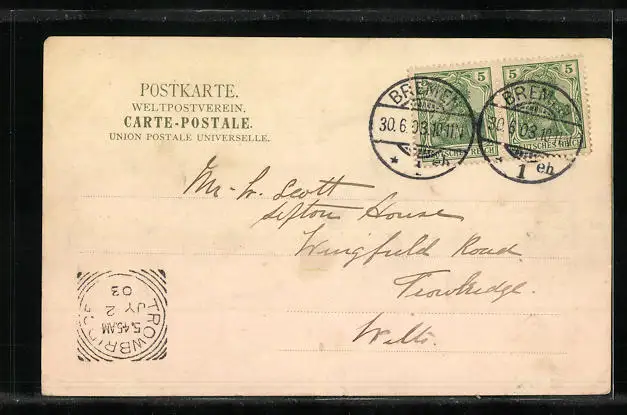 POSTKARTE.
WELTPOSTVEREIN.
CARTE-POSTALE.
UNION POSTALE UNIVERSELLE.
5 5
DEUTSCHES REICH DEUTSCHES REICH
BREMEN
30.6.03.10-11V.
* 1 eh
BREMEN
30.6.03.10-11V.
* 1 eh
Mr. W. Scott
Sefton House
Wingfield Road
Trowbridge.
Wilts.
TROWBRIDGE
5.45AM
JY 2
03